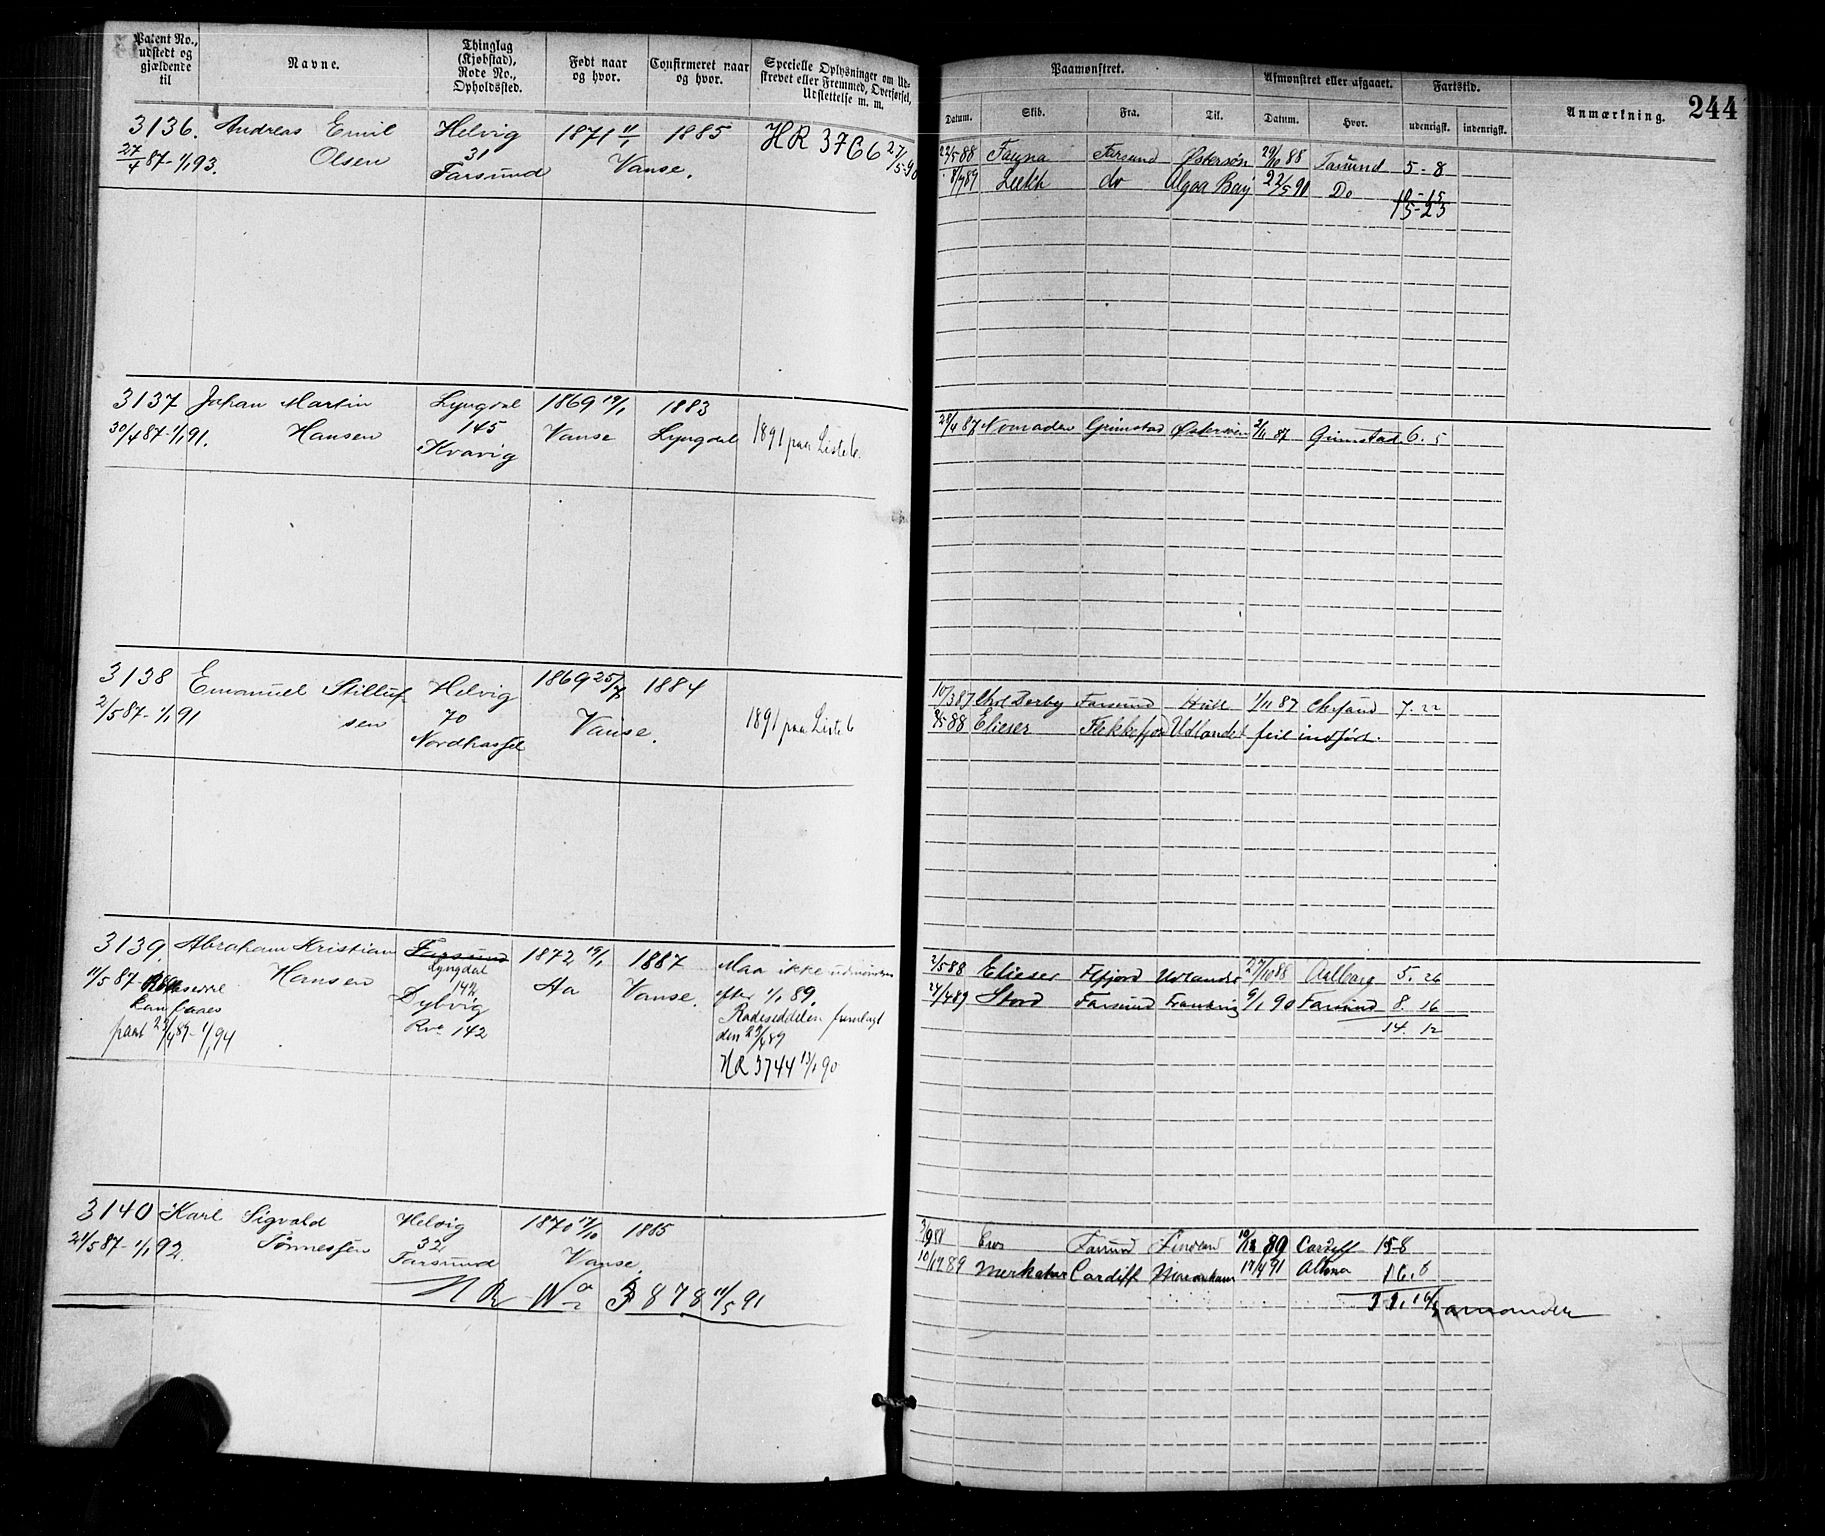 Patent No., udstedt og gjældende til
Navne.
Thinglag (Kjøbstad), Rode No., Opholdssted.
Født naar og hvor.
Confirmeret naar og hvor.
Specielle Oplysninger om Udskrevet eller Fremmed, Overførsel, Udslettelse m. m.
Paamønstret.
Afmønstret eller afgaaet.
Fartstid.
Anmærkning.
244
Datum.
Skib.
Fra.
Til.
Datum.
Hvor.
udenrigsk.
indenrigsk.
3136. Andreas Emil Helvig 1871 11/1 1885 HR 3766 27/5-90
27/4 87-1/1 93. Olsen 31 Vanse.
Farsund
22/5 88 Fauna Farsund Østersøn 29/10 88 Farsund 5-8
8/7 89 do Algoa Bay 22/5 90 Do 10-15
15-23
3137 Johan Martin Lyngdal 1869 19/1 1883
30/4 87-1/1 91. Hansen 145 Vanse Lyngdal 1891 paa Liste b.
Kvavig
28/4 87 Nomaden Grimstad Østersøen 2/11 87 Grimstad 6. 5
3138 Emanuel Helvig 1869 25/7 1884
2/5 87-1/1 91 sen 70 Vanse. 1891 paa Liste b
Nordhassel
10/3 87 Chr. Derby Farsund Hull 1/11 87 Chrsand 7. 22
2/5 88 Elieser Flekkefjord Udlandet feil indført.
3139. Abraham Kristian Farsund 1872 19/1 1887 Maa ikke udmønstres
Lyngdal
11/5 87- Hansen 14 Aa Vanse. efter 1/1 89.
Dybvig Rodeseddelen fremlagt
Rve 142 den 23/4 89
pant 23/4 89-1/1 94
HR 3744 13/1 90
2/5 88 Elieser Flfjord Udlandet 27/10 88 Aalborg 5. 26
24/4 89 Stord Farsund Frankrig 9/1 90 Farsund 8. 16
14. 12
3140 Karl Sigvald Helvig 1870 17/10 1885
21/5 87-1/1 92. Tønnessen 32 Vanse.
Farsund
HR No 3878 11/5 91
Farsund Cardiff 15-8
10/14 89 Merkatur Cardiff 17/4 91 Altona 16. 6